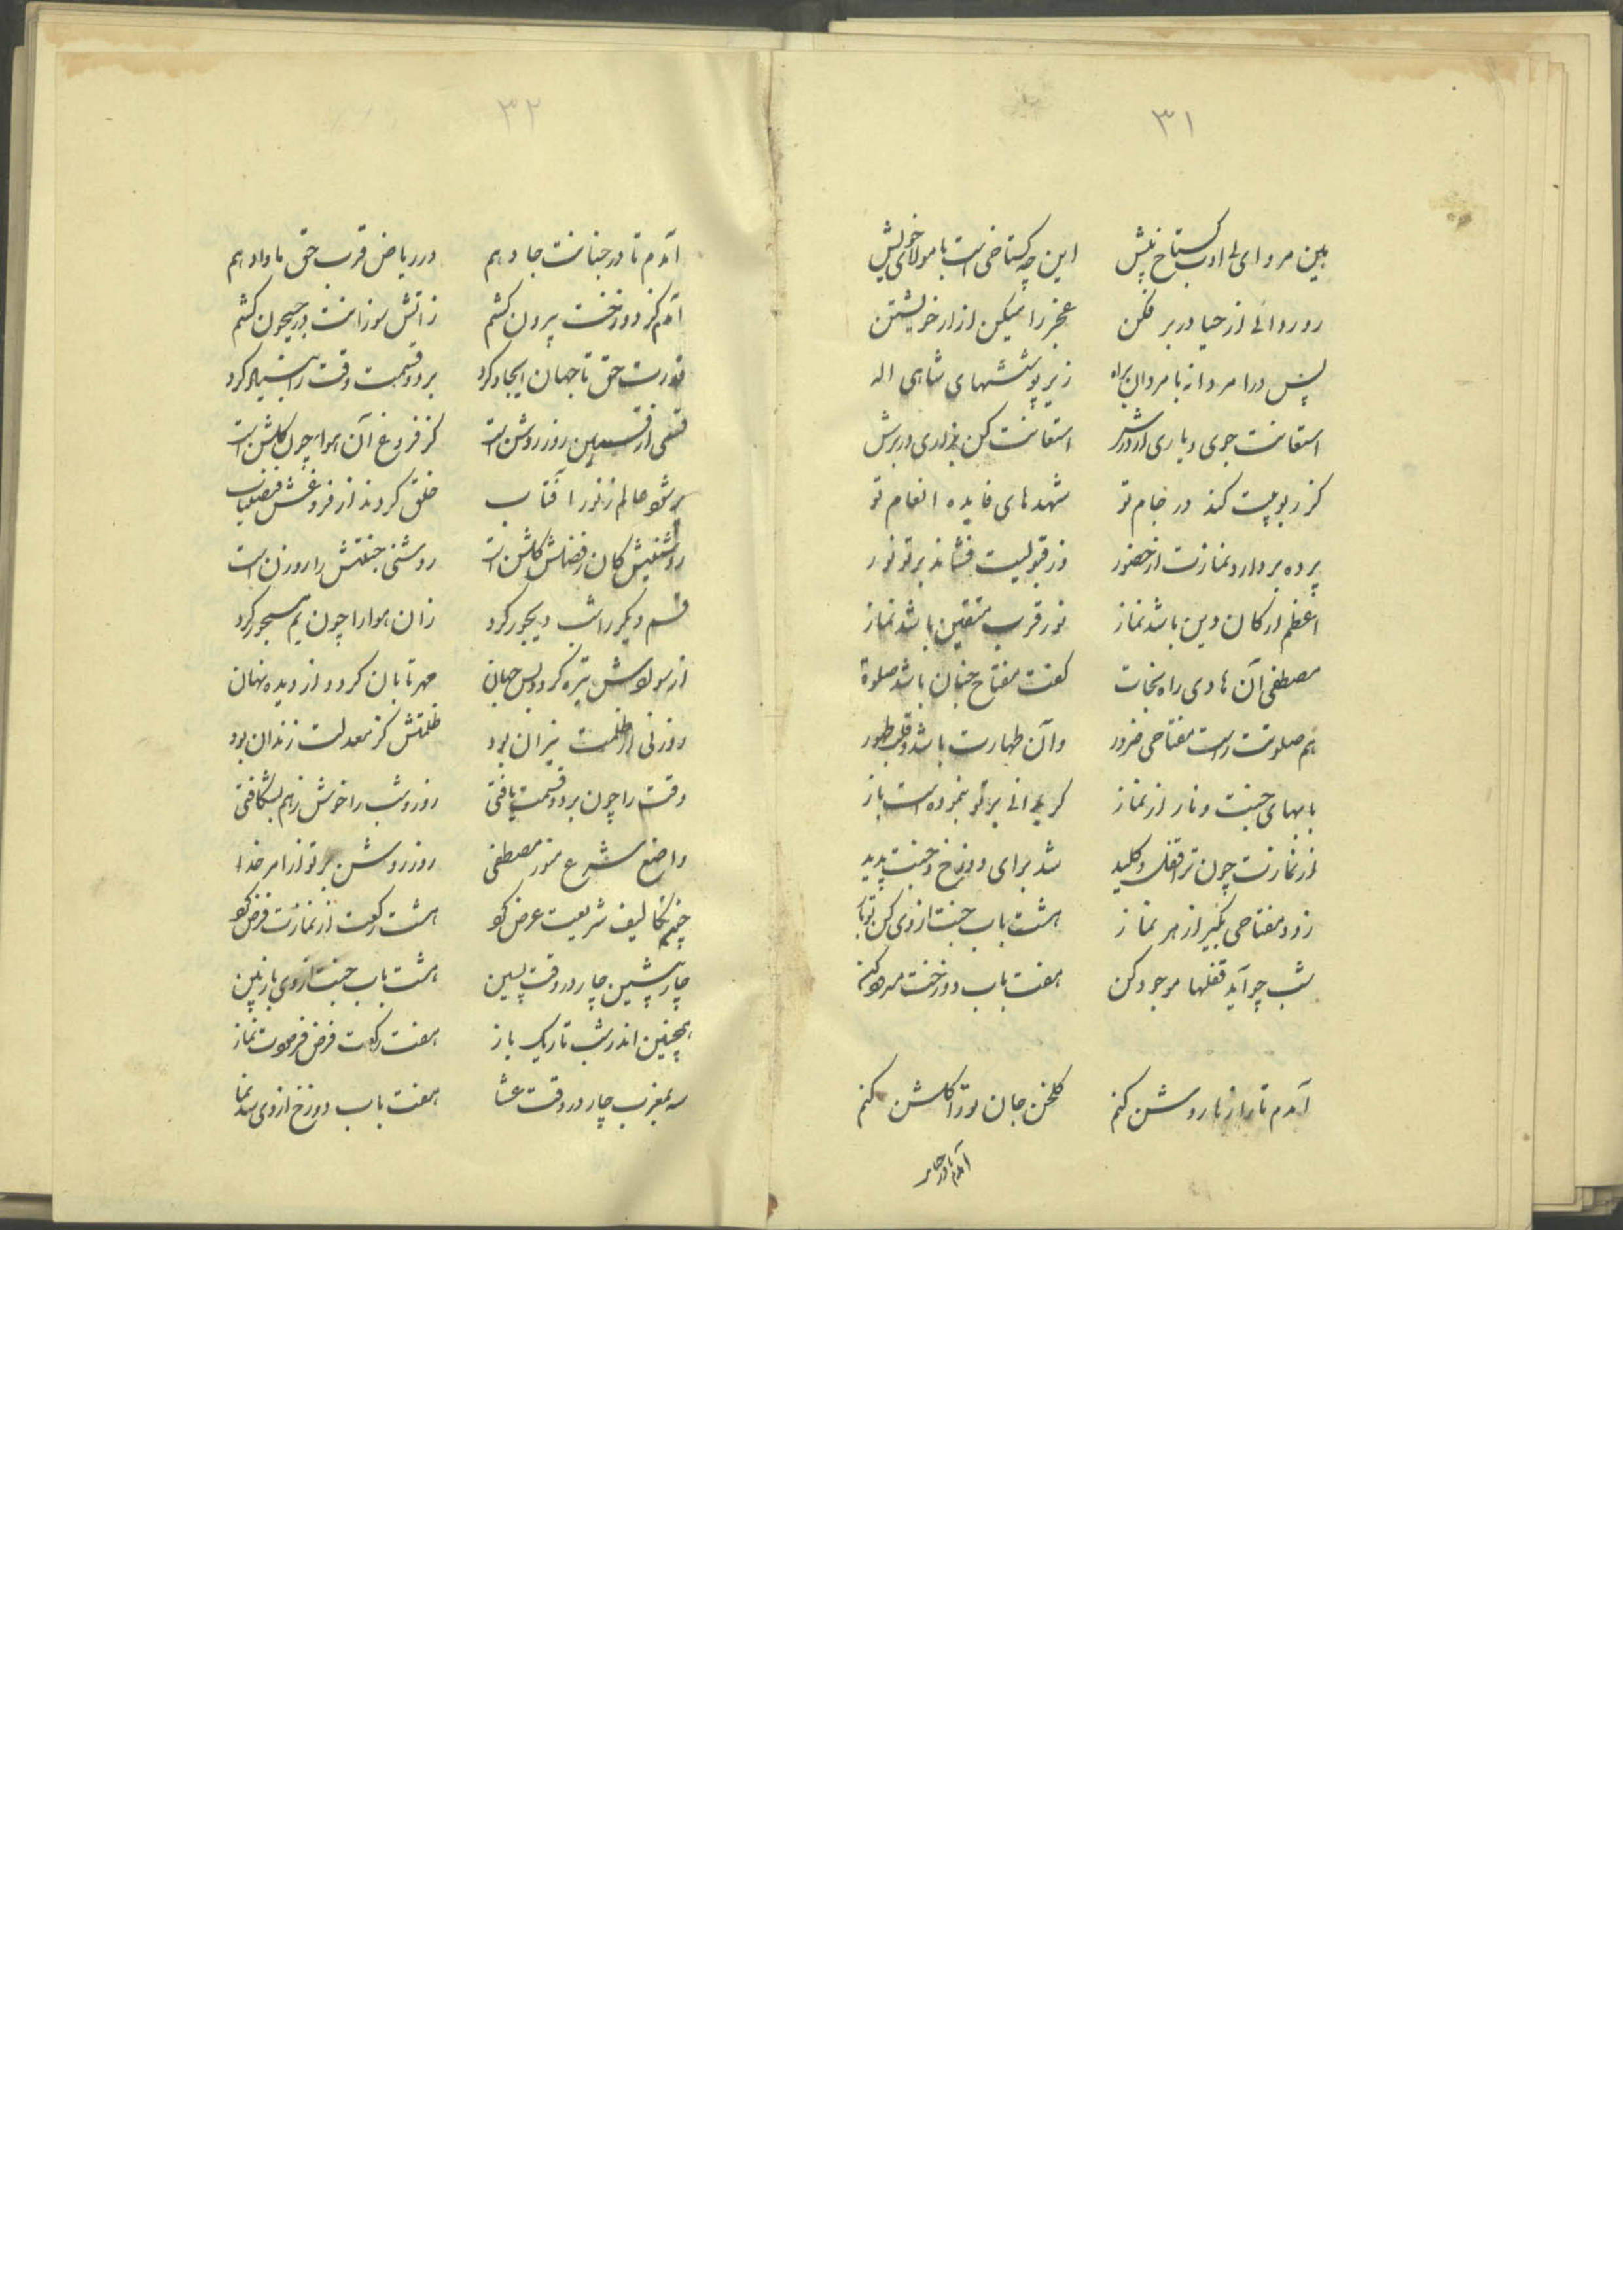 ۳۱
بین مرو ای بی ادب گستاخ پیش این چه گستاخی است با مولای خویش
رو ردائی از حیا در بر فکن عجز را میکن ازار خویشتن
پس درا مردانه با مردان براه زیر پوششهای شاهی اله
استعانت جوی و یاری از درش استعانت کن بزاری در برش
کز ربوبیت کند در جام تو شهدهای فایده انعام تو
پرده بردارد نمازت از حضور وز قبولیت فشاند بر تو نور
اعظم ارکان دین باشد نماز نور قرب متقین باشد نماز
مصطفی آن هادی راه نجات گفت مفتاح جنان باشد صلوة
هم صلوتت راست مفتاحی ضرور وآن طهارت باشد و قلب طهور
بابهای جنت و نار از نماز کر بدانی بر تو بنموده است باز
از نمازت چون ترا قفل و کلید شد برای دوزخ و جنت پدید
زود مفتاحی بگیر از هر نماز هشت باب جنت از وی کن تو باز
شب چو آید قفلها موجود کن هفت باب دوزخت مسدود کن
آمدم تا روشن کنم گلخن جان تو را گلشن کنم
آمدم تا در جنا
۳۲
آمدم تا در جنانت جا دهم در ریاض قرب حق ماوا دهم
آمدم کز دوزخت بیرون کشم زاتش سوزانت در جیحون کشم
قدرت حق تا جهان ایجاد کرد بر دو قسمت وقت را بنیاد کرد
قسمی از قسمین روز روشن است کز فروغ آن هوا چون گلشن است
پر شود عالم ز نور آفتاب خلق کردند از فروغش فیضیاب
روشنیش کان ز فضلش گلشن است روشنی جنتش را روزن است
قسم دیگر را شب دیجور کرد زان هوا را چون یم مسجور کرد
از سوادش تیره گردد پس جهان مهر تابان گردد از دیده نهان
روزنی از ظلمت نیران بود ظلمتش کز معدلت زندان بود
وقت را چون بر دو قسمت یافتی روز و شب را خوش ز هم بشکافتی
واضع شرع منور مصطفی روز روشن بر تو از امر خدا
تکالیف شریعت عرض کو هشت رکعت از نمازت فرض کو
چار پیشین چار در وقت پسین هشت باب جنت از وی باز بین
همچنین اندر شب تاریک باز هفت رکعت فرض فرمودت نماز
سه بمغرب چار در وقت عشا هفت باب دوزخ از وی سد نما